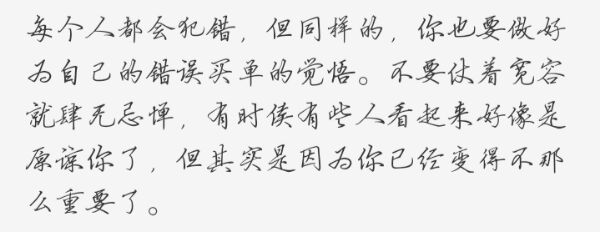 每个人都会犯错，但同样的，你也要做好
为自己的错误买单的觉悟。不要仗着宽容
就肆无忌惮，有时候有些人看起来好像是
原谅你了，但其实是因为你已经变得不那
么重要了。